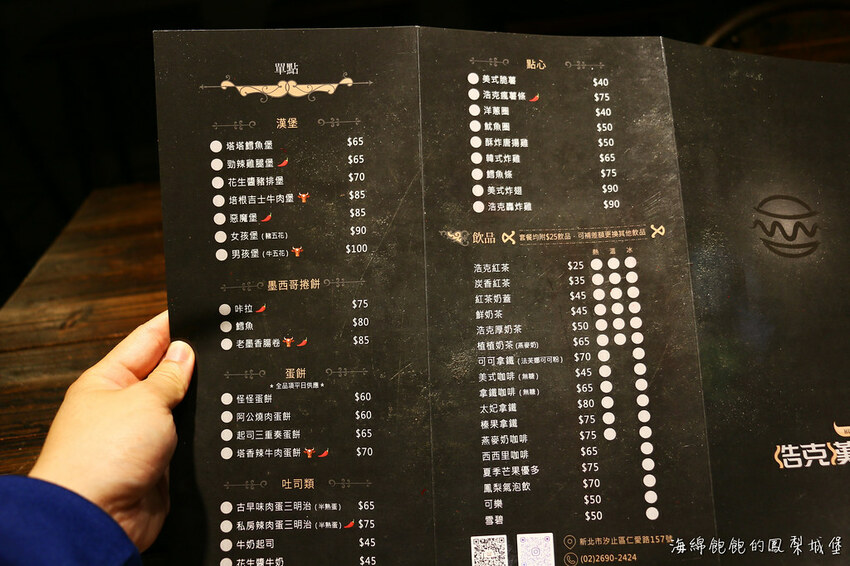 單點
漢堡
塔塔鱈魚堡 $65
勁辣雞腿堡 $65
花生醬豬排堡 $70
培根吉士牛肉堡 $85
惡魔堡 $85
女孩堡(豬五花) $90
男孩堡(牛五花) $100
墨西哥捲餅
咔拉 $75
鱈魚 $80
老墨香腸卷 $85
蛋餅
★全品項平日供應★
怪怪蛋餅 $60
阿公燒肉蛋餅 $60
起司三重奏蛋餅 $65
塔香辣牛肉蛋餅 $70
吐司類
古早味肉蛋三明治(半熟蛋) $65
私房辣肉蛋三明治(半熟蛋) $75
牛奶起司 $45
花生醬牛奶 $45
點心
美式脆薯 $40
浩克瘋薯條 $75
洋蔥圈 $40
魷魚圈 $50
酥炸唐揚雞 $50
韓式炸雞 $65
鱈魚條 $75
美式炸翅 $90
浩克轟炸雞 $90
飲品 套餐均附$25飲品,可補差額更換其他飲品
熱 溫 冰
浩克紅茶 $25
炭香紅茶 $35
紅茶奶蓋 $45
鮮奶茶 $45
浩克厚奶茶 $50
植植奶茶(燕麥奶) $65
可可拿鐵(法芙娜可可粉) $70
美式咖啡(無糖) $45
拿鐵咖啡(無糖) $65
太妃拿鐵 $80
榛果拿鐵 $75
燕麥奶咖啡 $75
西西里咖啡 $65
夏季芒果優多 $75
鳳梨氣泡飲 $70
可樂 $50
雪碧 $50
新北市汐止區仁愛路157號
(02)2690-2424
浩克漢
海綿飽飽的鳳梨城堡